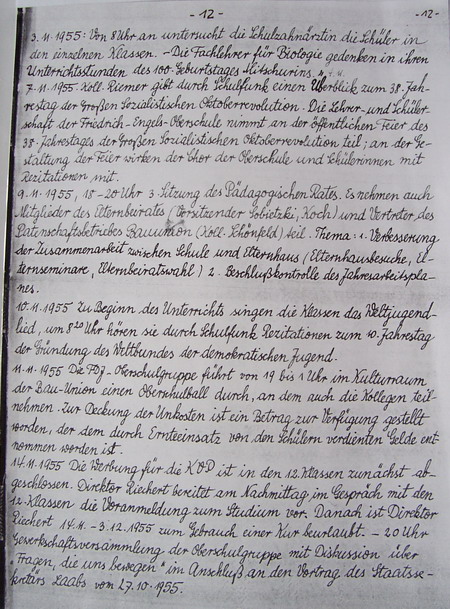 - 12 - -12-
3.11.1955: Von 8 Uhr an untersucht die Schulzahnärztin die Schüler in
den einzelnen Klassen. - Die Fachlehrer für Biologie gedenken in ihren
Unterrichtsstunden des 100. Geburtstages Mitschurins.
7.11.1955. Koll. Riemer gibt durch Schulfunk einen Überblick zum 38. Jah-
restag der Großen Sozialistischen Oktoberrevolution. Die Lehrer- und Schüler-
schaft der Friedrich-Engels-Oberschule nimmt an der öffentlichen Feier des
38. Jahrestages der Großen Sozialistischen Oktoberrevolution teil; an der Ge-
staltung der Feier wirken der Chor der Oberschule und Schülerinnen mit
Rezitationen mit.
9.11.1955, 18-20 Uhr 3. Sitzung des Pädagogischen Rates. Es nehmen auch
Mitglieder des Elternbeirates (Vorsitzender Sobietzki, Koch) und Vertreter des
Patenschaftsbetriebes Bauunion (Koll. Schönfeld) teil. Thema: 1. Verbesserung
der Zusammenarbeit zwischen Schule und Elternhaus (Elternhausbesuche, El-
ternseminare, Elternbeiratswahl) 2. Beschlußkontrolle des Jahresarbeitspla-
nes.
10.11.1955 Zu Beginn des Unterrichts singen die Klassen das Weltjugend-
lied, um 8²⁰ Uhr hören sie durch Schulfunk Rezitationen zum 10. Jahrestag
der Gründung des Weltbundes der demokratischen Jugend.
11.11.1955 Die FDJ-Oberschulgruppe führt von 19 bis 1 Uhr im Kulturraum
der Bau-Union einen Oberschulball durch, an dem auch die Kollegen teil-
nehmen. Zur Deckung der Unkosten ist ein Betrag zur Verfügung gestellt
worden, der dem durch Ernteeinsatz von den Schülern verdienten Gelde ent-
nommen worden ist.
14.11.1955 Die Werbung für die KVP ist in den 12. Klassen zunächst ab-
geschlossen. Direktor Riechert bereitet am Nachmittag im Gespräch mit den
12. Klassen die Voranmeldung zum Studium vor. Danach ist Direktor
Riechert 14.11. - 3.12.1955 zum Gebrauch einer Kur beurlaubt. - 20 Uhr
Gewerkschaftsversammlung der Oberschulgruppe mit Diskussion über
"Fragen, die uns bewegen" im Anschluß an den Vortrag des Staatsse-
kretärs Laabs vom 27.10.1955.